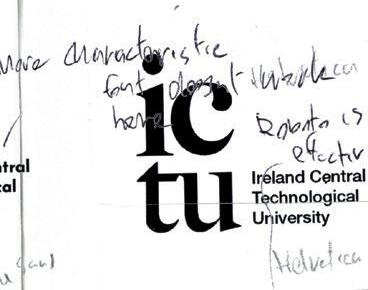 More characteristic
font doesn't
here
Roboto is
ic
tu
ntral
cal
Ireland Central
Technological
University
Helvetica